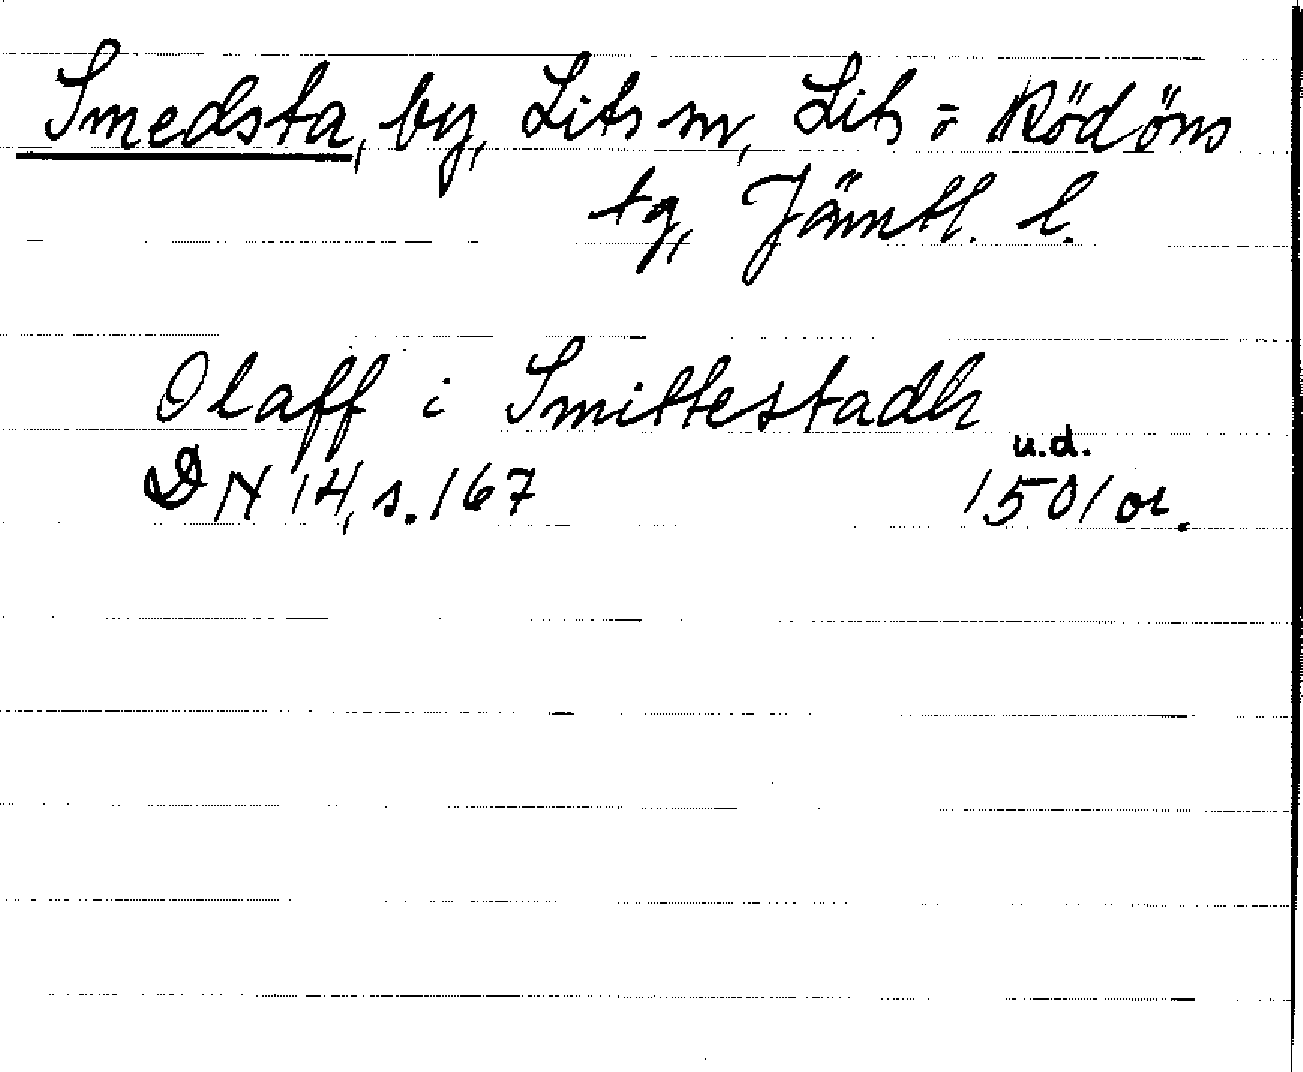 Smedsta, by, Lits sn, Lits o Rödöns
tg, Jämtl. l.
Olaff i Smittestadh
u.d.
DN 14, s. 167 1501 or.